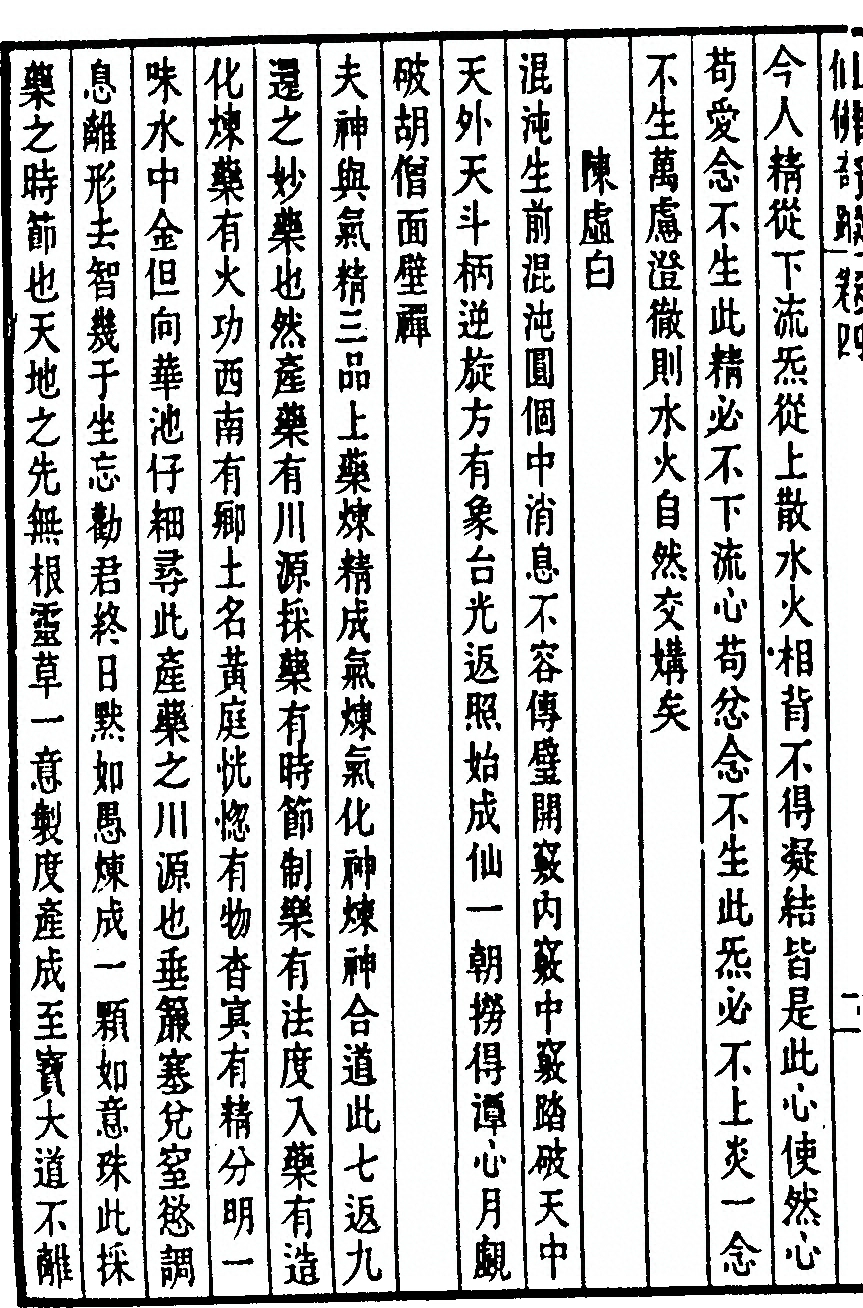 仙佛奇蹤 卷四
今人精從下流炁從上散水火相背不得凝結皆是此心使然心
苟愛念不生此精必不下流心苟忿念不生此炁必不上炎一念
不生萬慮澄徹則水火自然交媾矣
陳虛白
混沌生前混沌圓個中消息不容傳璧開竅内竅中竅踏破天中
天外天斗柄逆旋方有象台光返照始成仙一朝撈得潭心月覷
破胡僧面壁禪
夫神與氣精三品上藥煉精成氣煉氣化神煉神合道此七返九
還之妙藥也然產藥有川源採藥有時節制藥有法度入藥有造
化煉藥有火功西南有鄉土名黃庭恍惚有物杳冥有精分明一
味水中金但向華池仔細尋此產藥之川源也垂簾塞兌窒慾調
息離形去智幾于坐忘勸君終日默如愚煉成一顆如意珠此採
藥之時節也天地之先無根靈草一意製度產成至寶大道不離